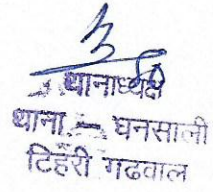 थानाध्यक्ष
थाना – घनसाली
टिहरी गढवाल